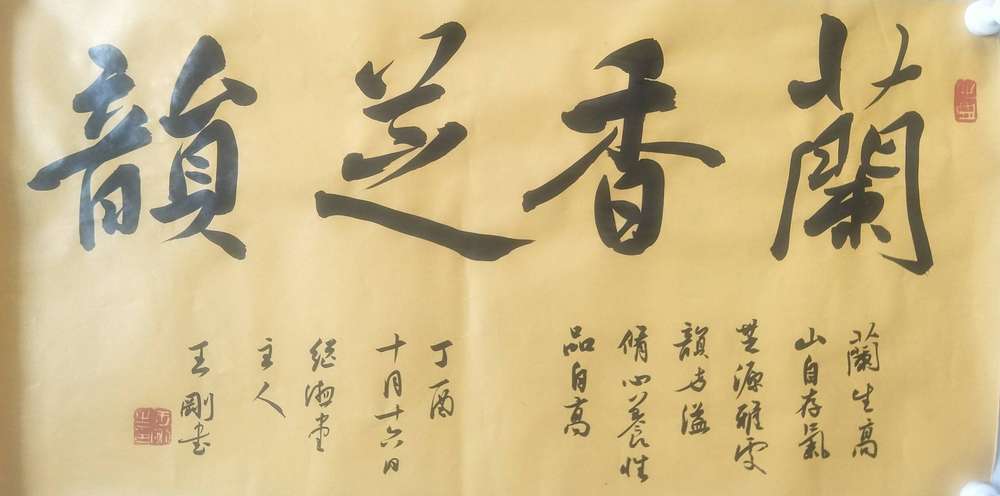 蘭香芝韻
蘭生高
山自存氣
芝源雅雯
韻方溢
脩心養性
品自高
丁酉
十月十六日
继德堂
主人
王剛书